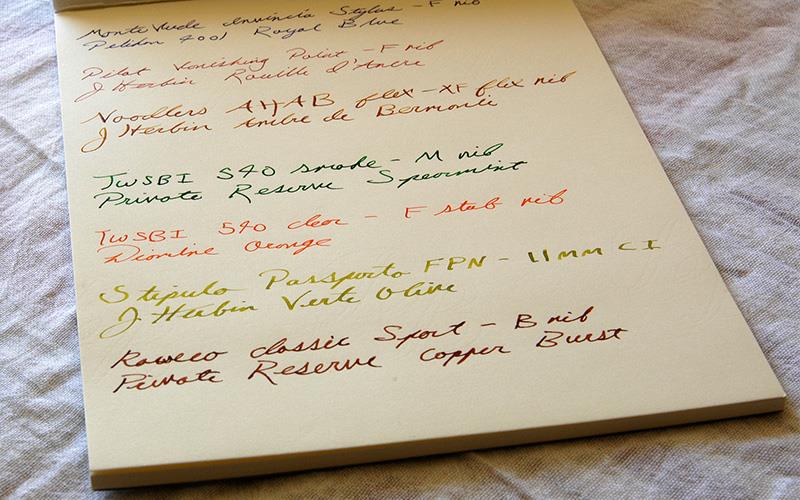 Monte Verde Invincia Stylus - F nib
Pelikan 4001 Royal Blue
Pilot Vanishing Point - F nib
J Herbin Rouille d'Ancre
Noodlers AHAB flex - XF flex nib
J Herbin Ambre de Bermanie
TWSBI 540 smoke - M nib
Private Reserve Spearmint
TWSBI 540 clear - F stub nib
Diamine Orange
Stipula Passporto FPN - 1.1mm CI
J. Herbin Verte Olive
Kaweco Classic Sport - B nib
Private Reserve Copper Burst